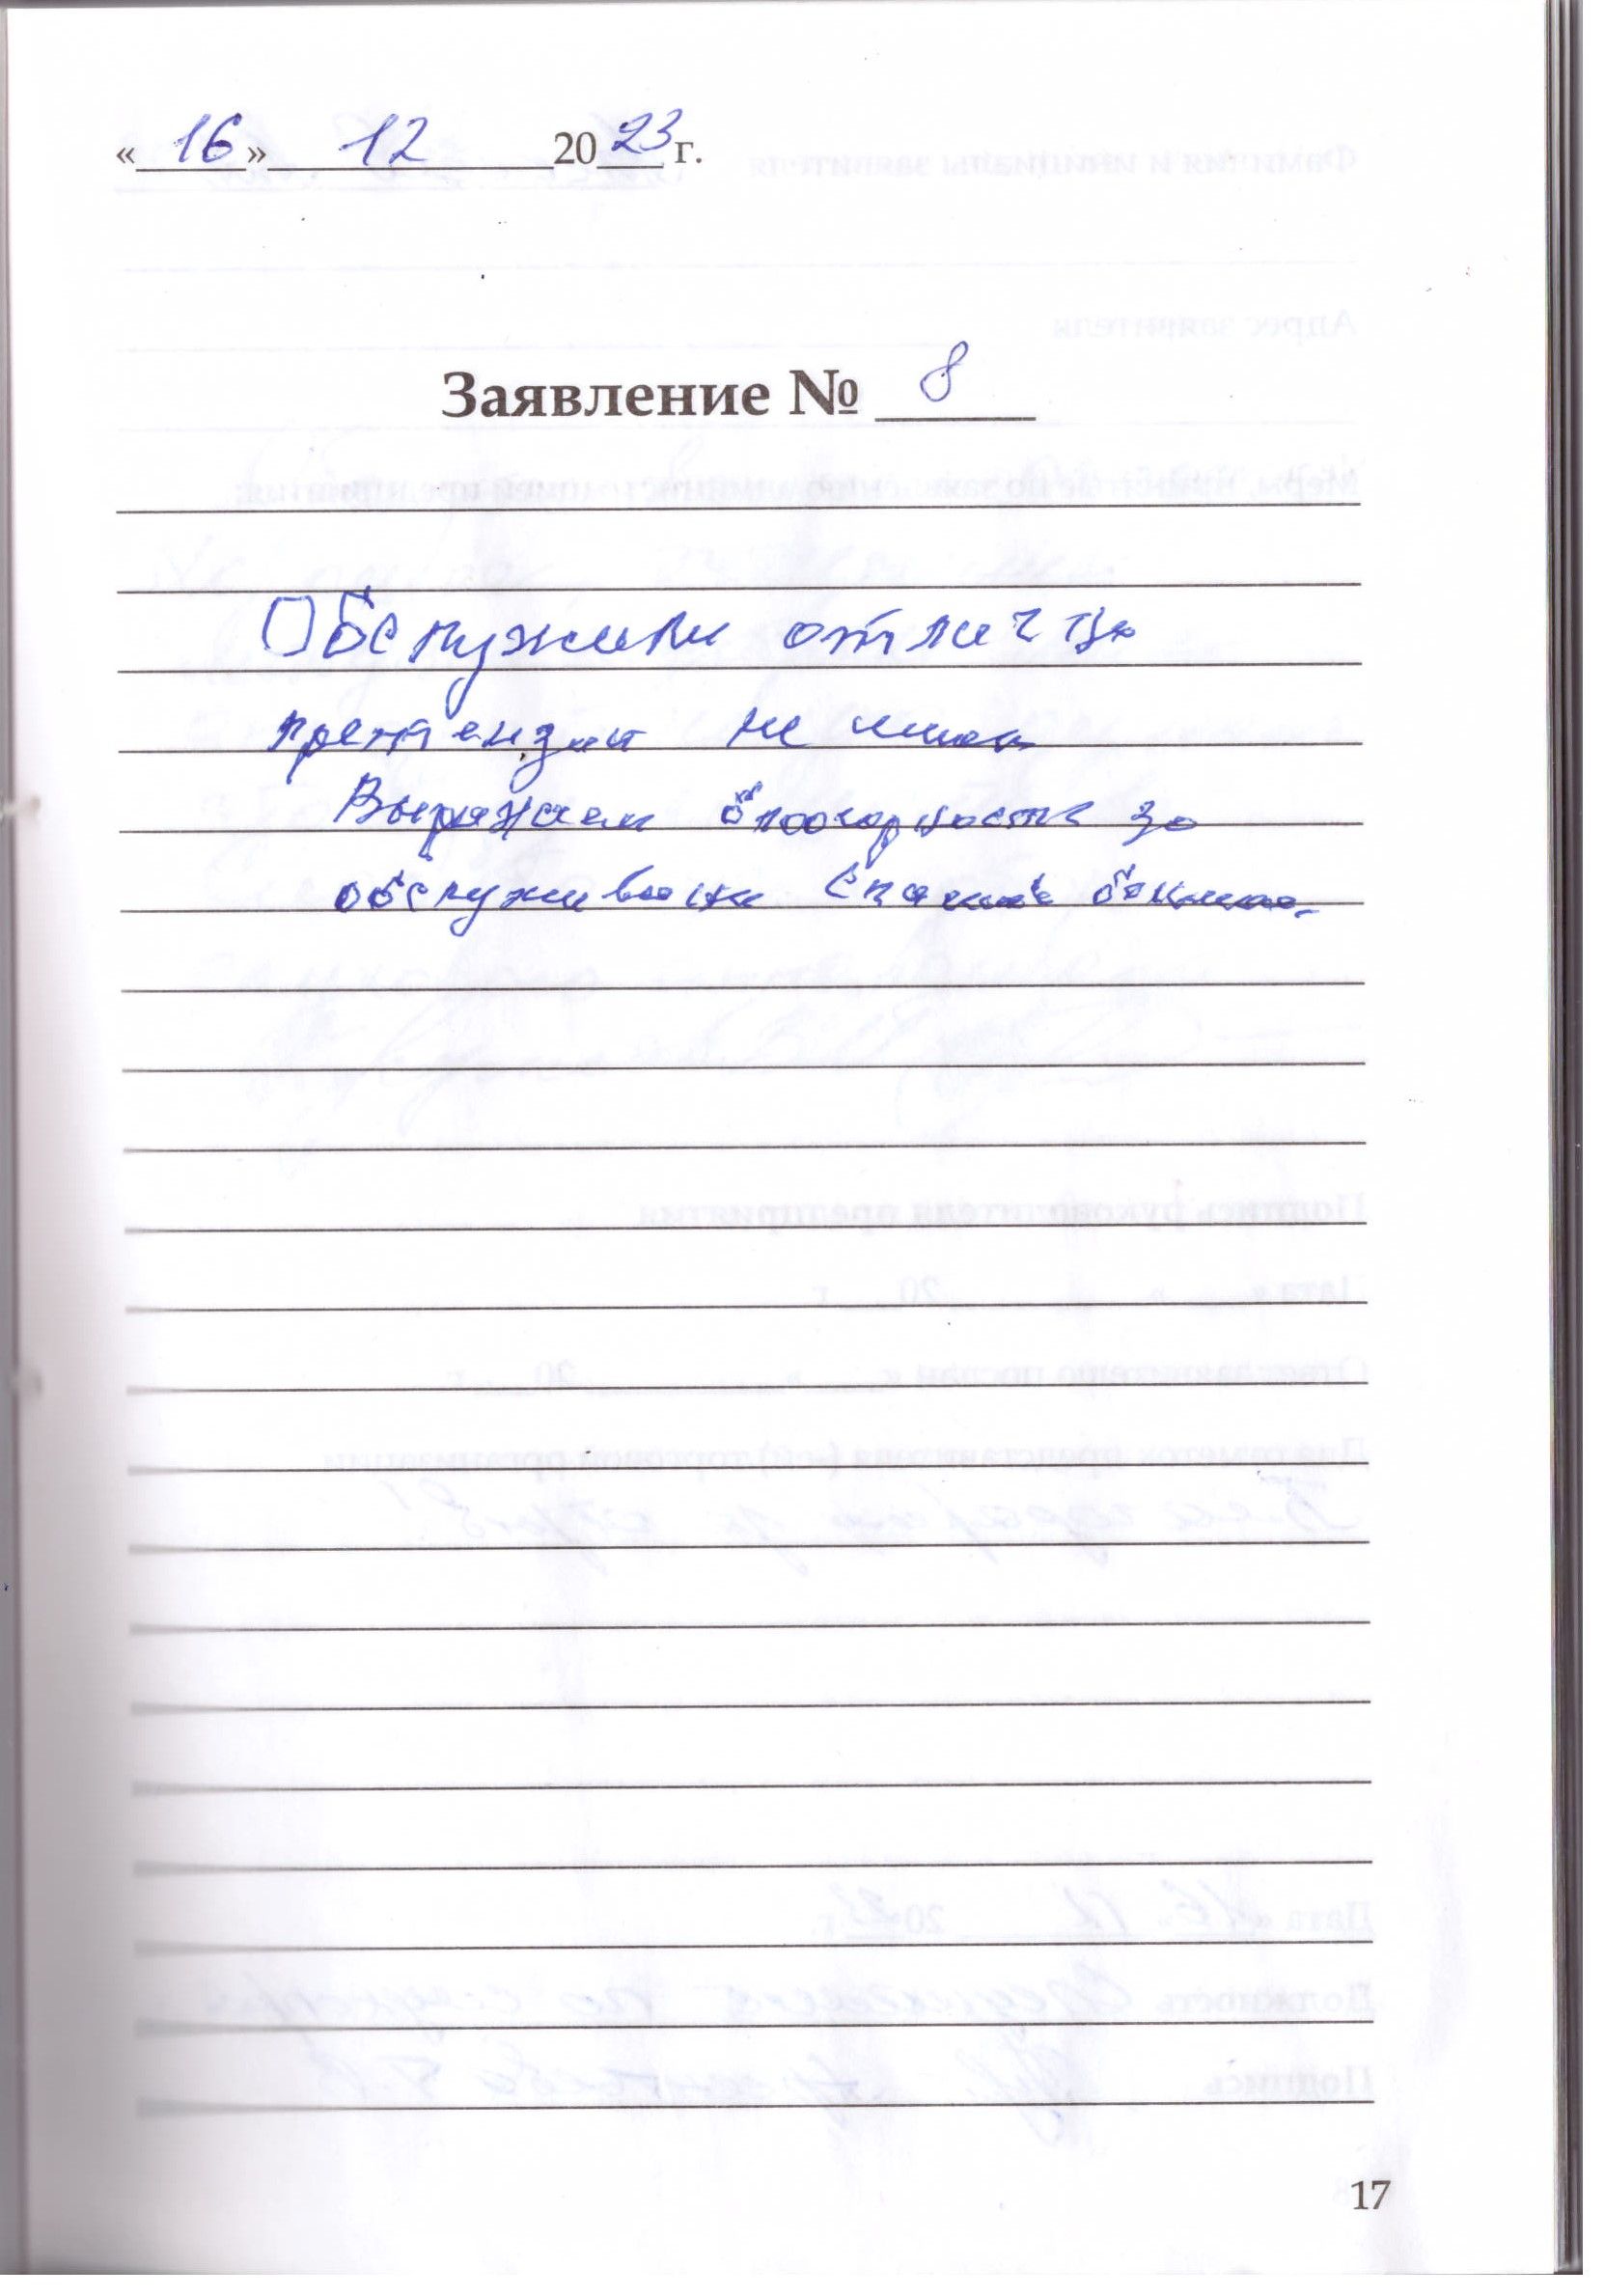 «16» 12 2023 г.
Заявление № 8
Обслужили отлично
претензий не имею
Выражаем благодарность за
обслуживание Спасибо большое.
17